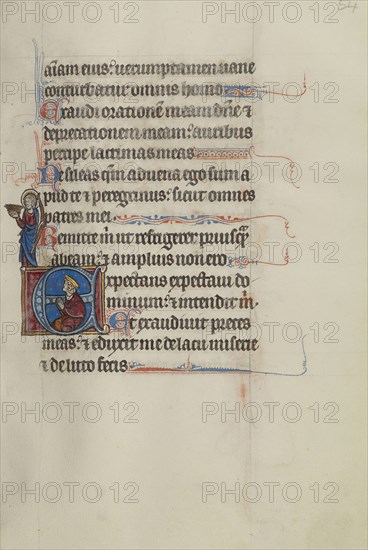 54
aīam eius: uerumptamen uane
conturbatur omnis homo
Exaudi orationem meam dn̄e &
deprecationem meam: auribus
percipe lacrimas meas
Ne sileas qm̄ aduena ego sum a
pud te & peregrinus: sicut omnes
patres mei
Remitte m̄ ut refrigerer priusq̄
abeam: & amplius non ero
Expectans expectaui do
minum: & intendit m̄
Et exaudiuit preces
meas: & eduxit me de lacu miserie
& de luto fecis
PHOTO 12
PHOTO 12
PHOTO 12
PHOTO 12
PHOTO 12
PHOTO 12
PHOTO 12
PHOTO 12
PHOTO 12
PHOTO 12